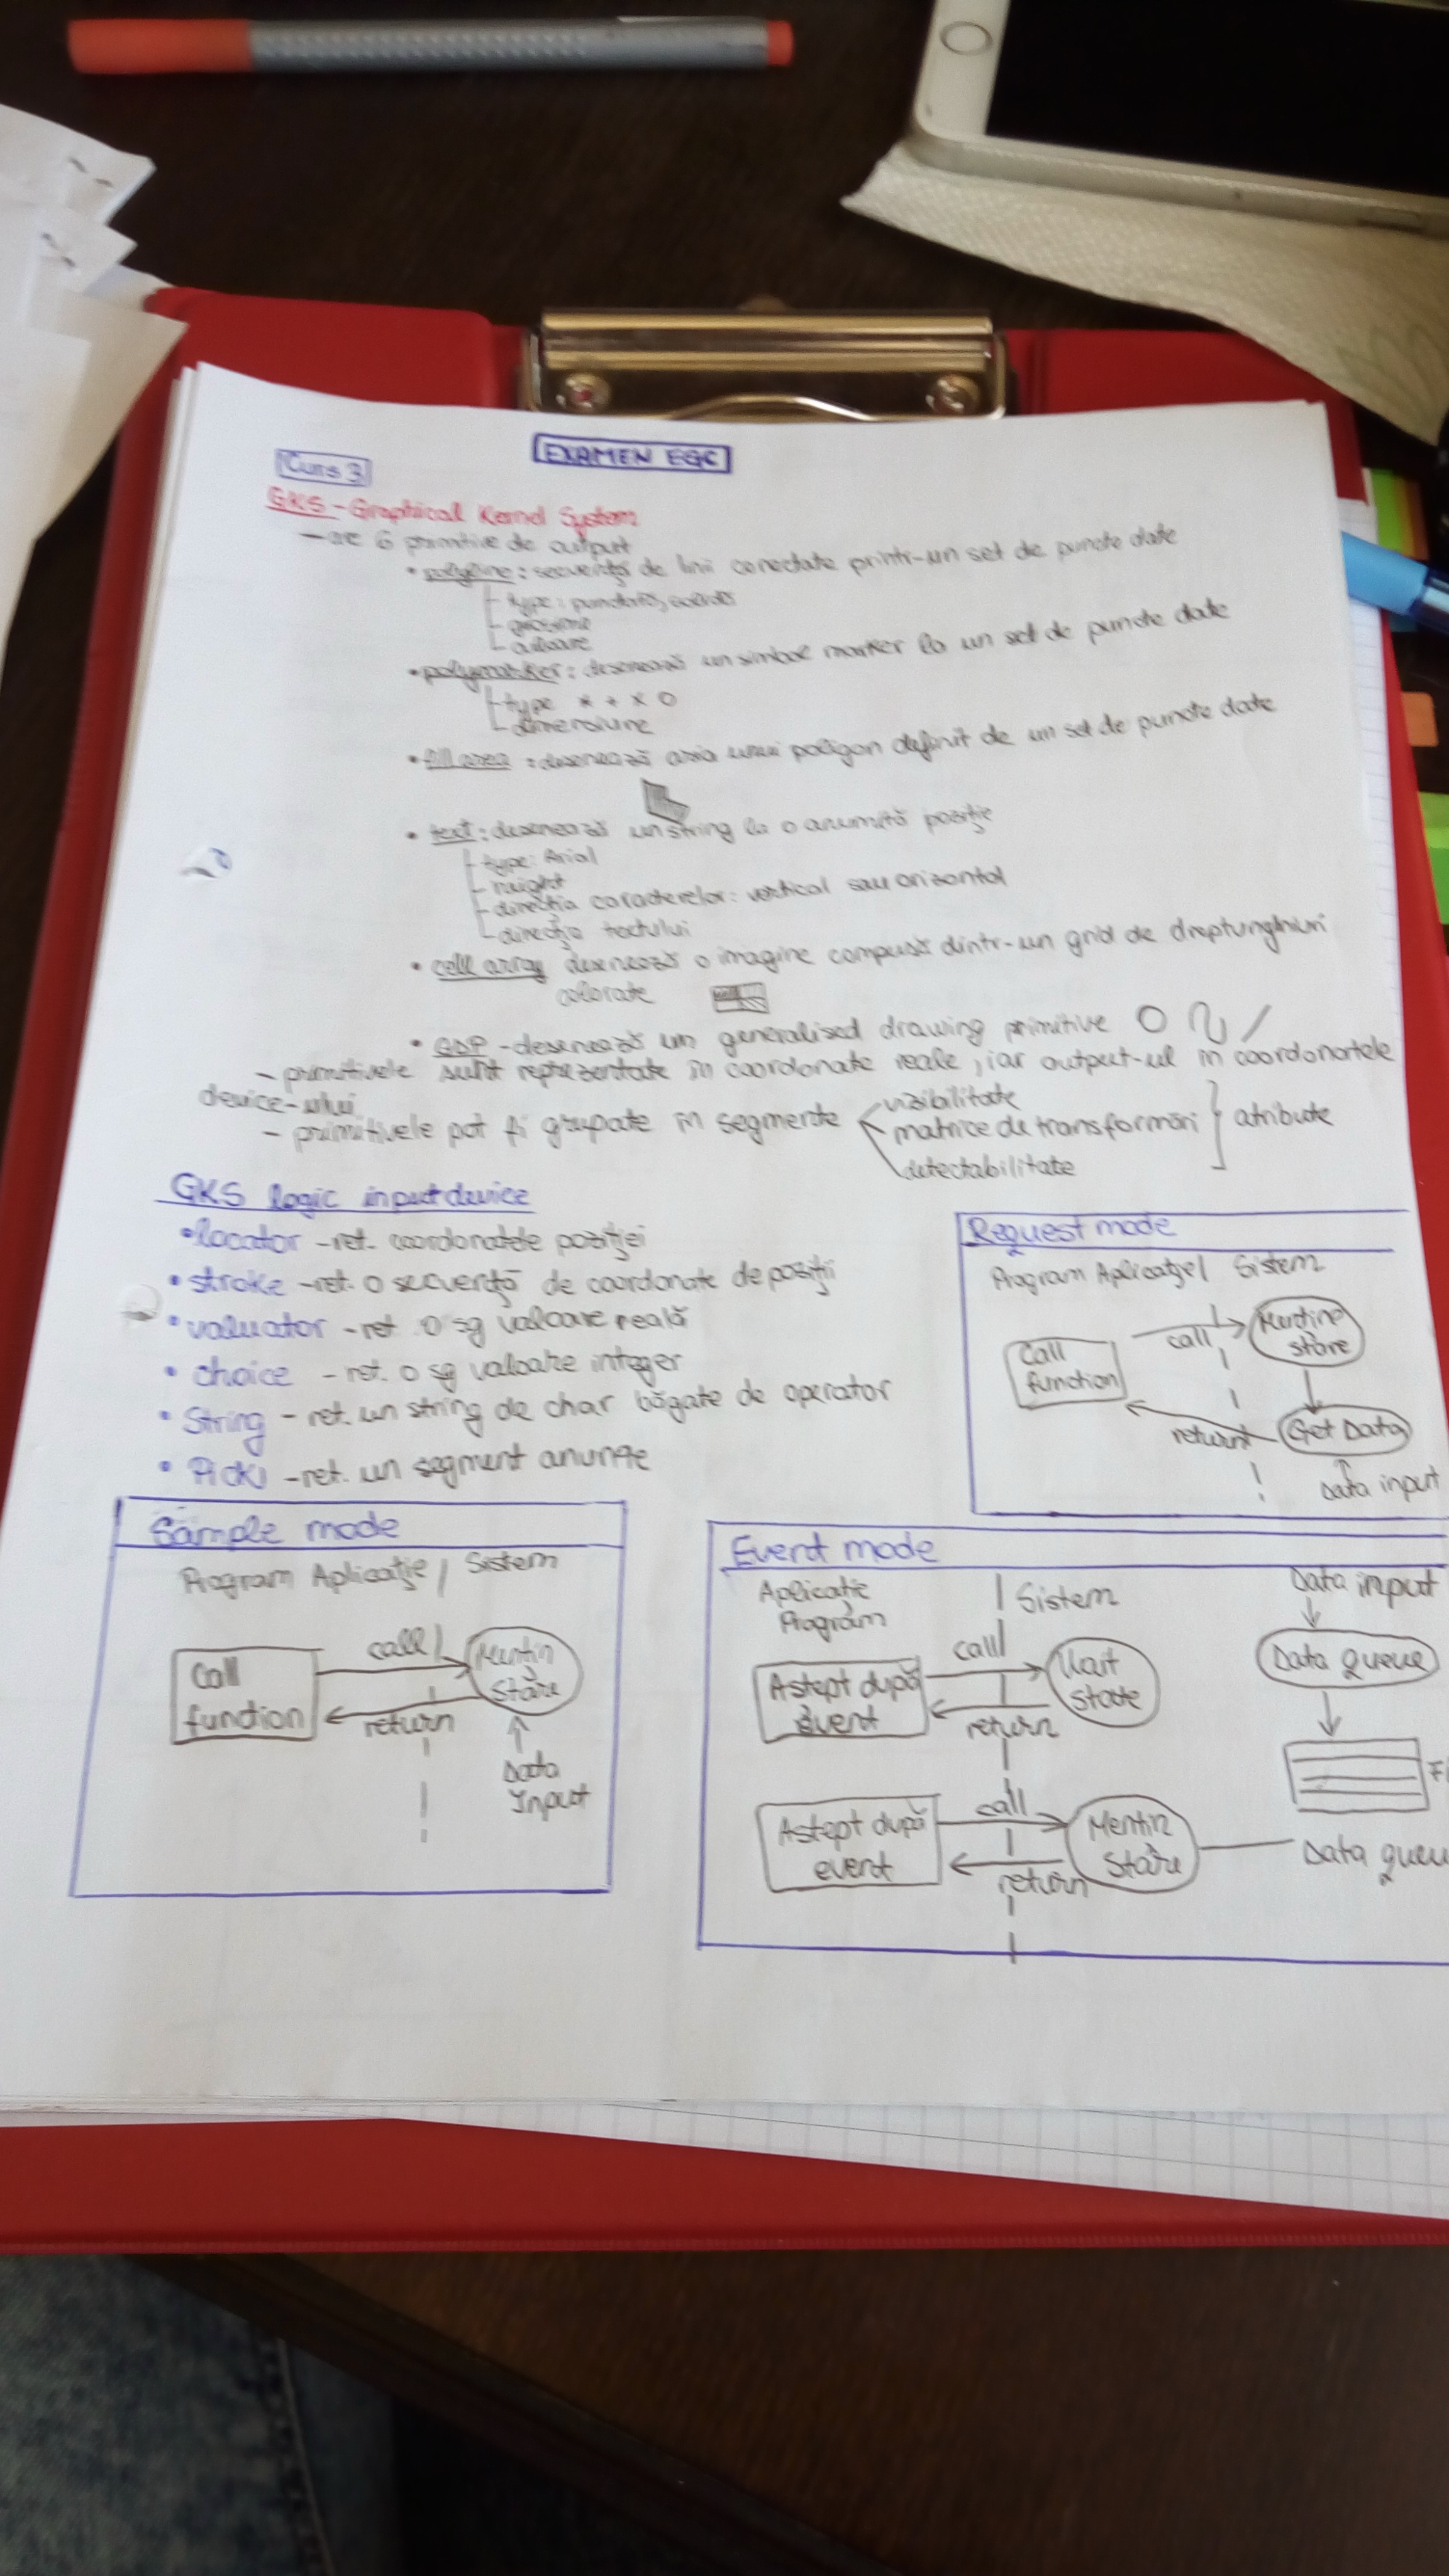 EXAMEN EGC
Curs 3
GKS - Graphical Kernel System
— are 6 primitive de output
• polyline : secvență de linii conectate printr-un set de puncte date
type: punctată, solidă
grosime
culoare
• polymarker : desenează un simbol marker la un set de puncte date
type * + x O
dimensiune
• fill area : desenează aria unui poligon definit de un set de puncte date
• text : desenează un string la o anumită poziție
type: Arial
height
direcția caracterelor: vertical sau orizontal
direcția textului
• cell array desenează o imagine compusă dintr-un grid de dreptunghiuri
colorate
• GDP - desenează un generalised drawing primitive
- primitivele sunt reprezentate în coordonate reale, iar output-ul în coordonatele
device-ului
- primitivele pot fi grupate în segmente
vizibilitate
matrice de transformări
detectabilitate
atribute
GKS logic input device
• locator - ret. coordonatele poziției
• stroke - ret. o secvență de coordonate de poziții
• valuator - ret. o sg valoare reală
• choice - ret. o sg valoare integer
• String - ret. un string de char băgate de operator
• Pick - ret. un segment anume
Request mode
Program Aplicație | Sistem
Call function
call
Menține stare
return
Get Data
Data input
Sample mode
Program Aplicație | Sistem
Call function
call
Mențin stare
return
Data Input
Event mode
Aplicație Program
Sistem
Data input
Aștept după event
call
Wait state
return
Data queue
Aștept după event
call
Mențin Stare
return
Data queu